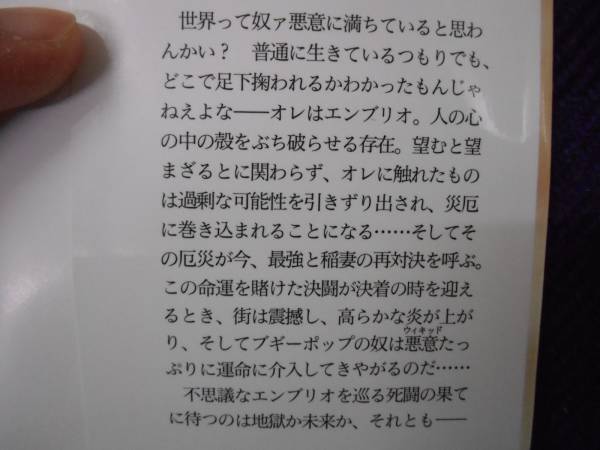 世界って奴ァ悪意に満ちていると思わ
んかい？　普通に生きているつもりでも、
どこで足下掬われるかわかったもんじゃ
ねえよな――オレはエンブリオ。人の心
の中の殻をぶち破らせる存在。望むと望
まざるとに関わらず、オレに触れたもの
は過剰な可能性を引きずり出され、災厄
に巻き込まれることになる……そしてそ
の厄災が今、最強と稲妻の再対決を呼ぶ。
この命運を賭けた決闘が決着の時を迎え
るとき、街は震撼し、高らかな炎が上が
り、そしてブギーポップの奴は悪意たっ
ウィキッド
ぷりに運命に介入してきやがるのだ……
不思議なエンブリオを巡る死闘の果て
に待つのは地獄か未来か、それとも――